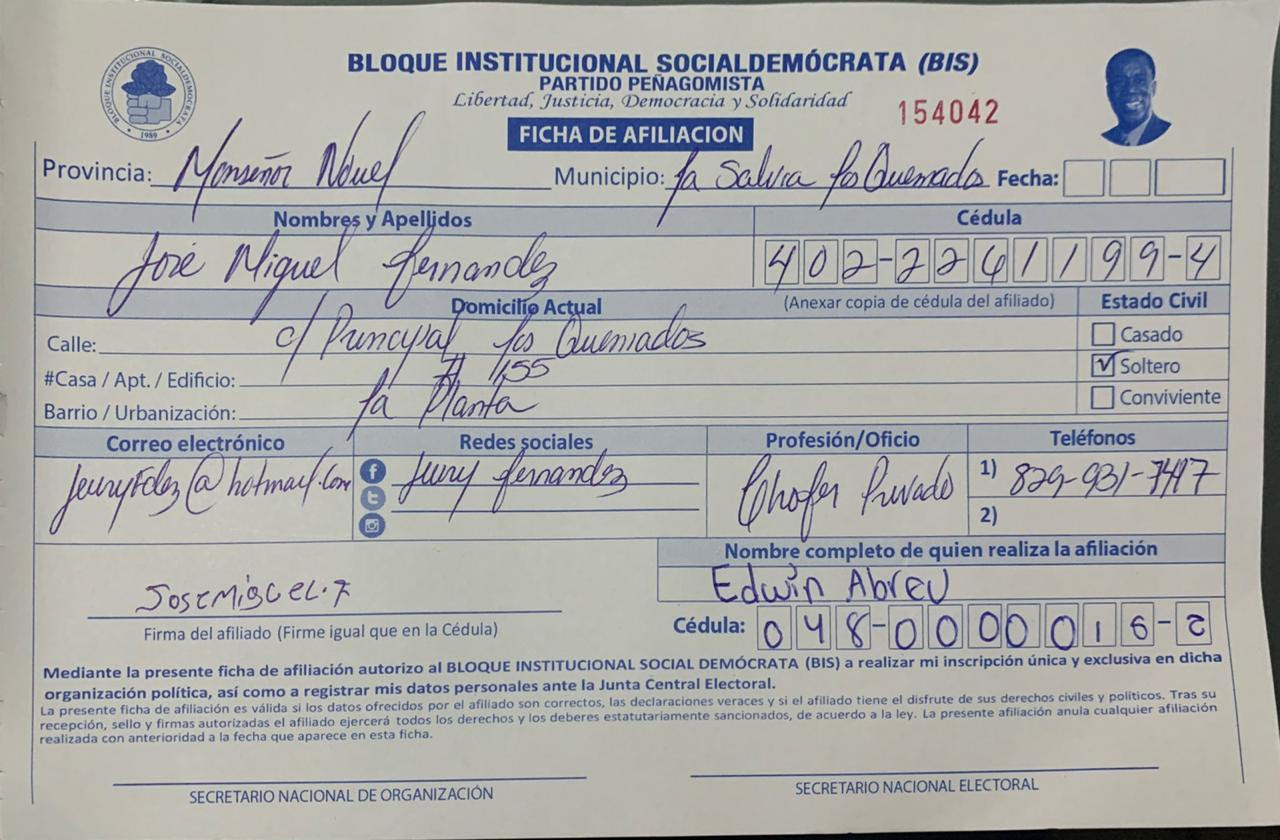 BLOQUE INSTITUCIONAL SOCIALDEMÓCRATA (BIS)
PARTIDO PEÑAGOMISTA
Libertad, Justicia, Democracia y Solidaridad
154042
BLOQUE INSTITUCIONAL SOCIALDEMOCRATA
1989
FICHA DE AFILIACION
Provincia: Monseñor Nouel Municipio: La Salvia Los Quemados Fecha:
Nombres y Apellidos Cédula
José Miguel Fernandez 402-2261199-4
Domicilio Actual (Anexar copia de cédula del afiliado) Estado Civil
Calle: c/ Principal Los Quemados
Casado
#Casa / Apt. / Edificio: # 155
Soltero
Barrio / Urbanización: La Planta
Conviviente
Correo electrónico Redes sociales Profesión/Oficio Teléfonos
@hotmail.com Fernandez Chofer Privado 1) 829-931-7417
2)
Nombre completo de quien realiza la afiliación
Edwin Abreu
JOSEMIGUEL.F
Firma del afiliado (Firme igual que en la Cédula) Cédula: 048-0000016-2
Mediante la presente ficha de afiliación autorizo al BLOQUE INSTITUCIONAL SOCIAL DEMÓCRATA (BIS) a realizar mi inscripción única y exclusiva en dicha
organización política, así como a registrar mis datos personales ante la Junta Central Electoral.
La presente ficha de afiliación es válida si los datos ofrecidos por el afiliado son correctos, las declaraciones veraces y si el afiliado tiene el disfrute de sus derechos civiles y políticos. Tras su
recepción, sello y firmas autorizadas el afiliado ejercerá todos los derechos y los deberes estatutariamente sancionados, de acuerdo a la ley. La presente afiliación anula cualquier afiliación
realizada con anterioridad a la fecha que aparece en esta ficha.
SECRETARIO NACIONAL DE ORGANIZACIÓN SECRETARIO NACIONAL ELECTORAL